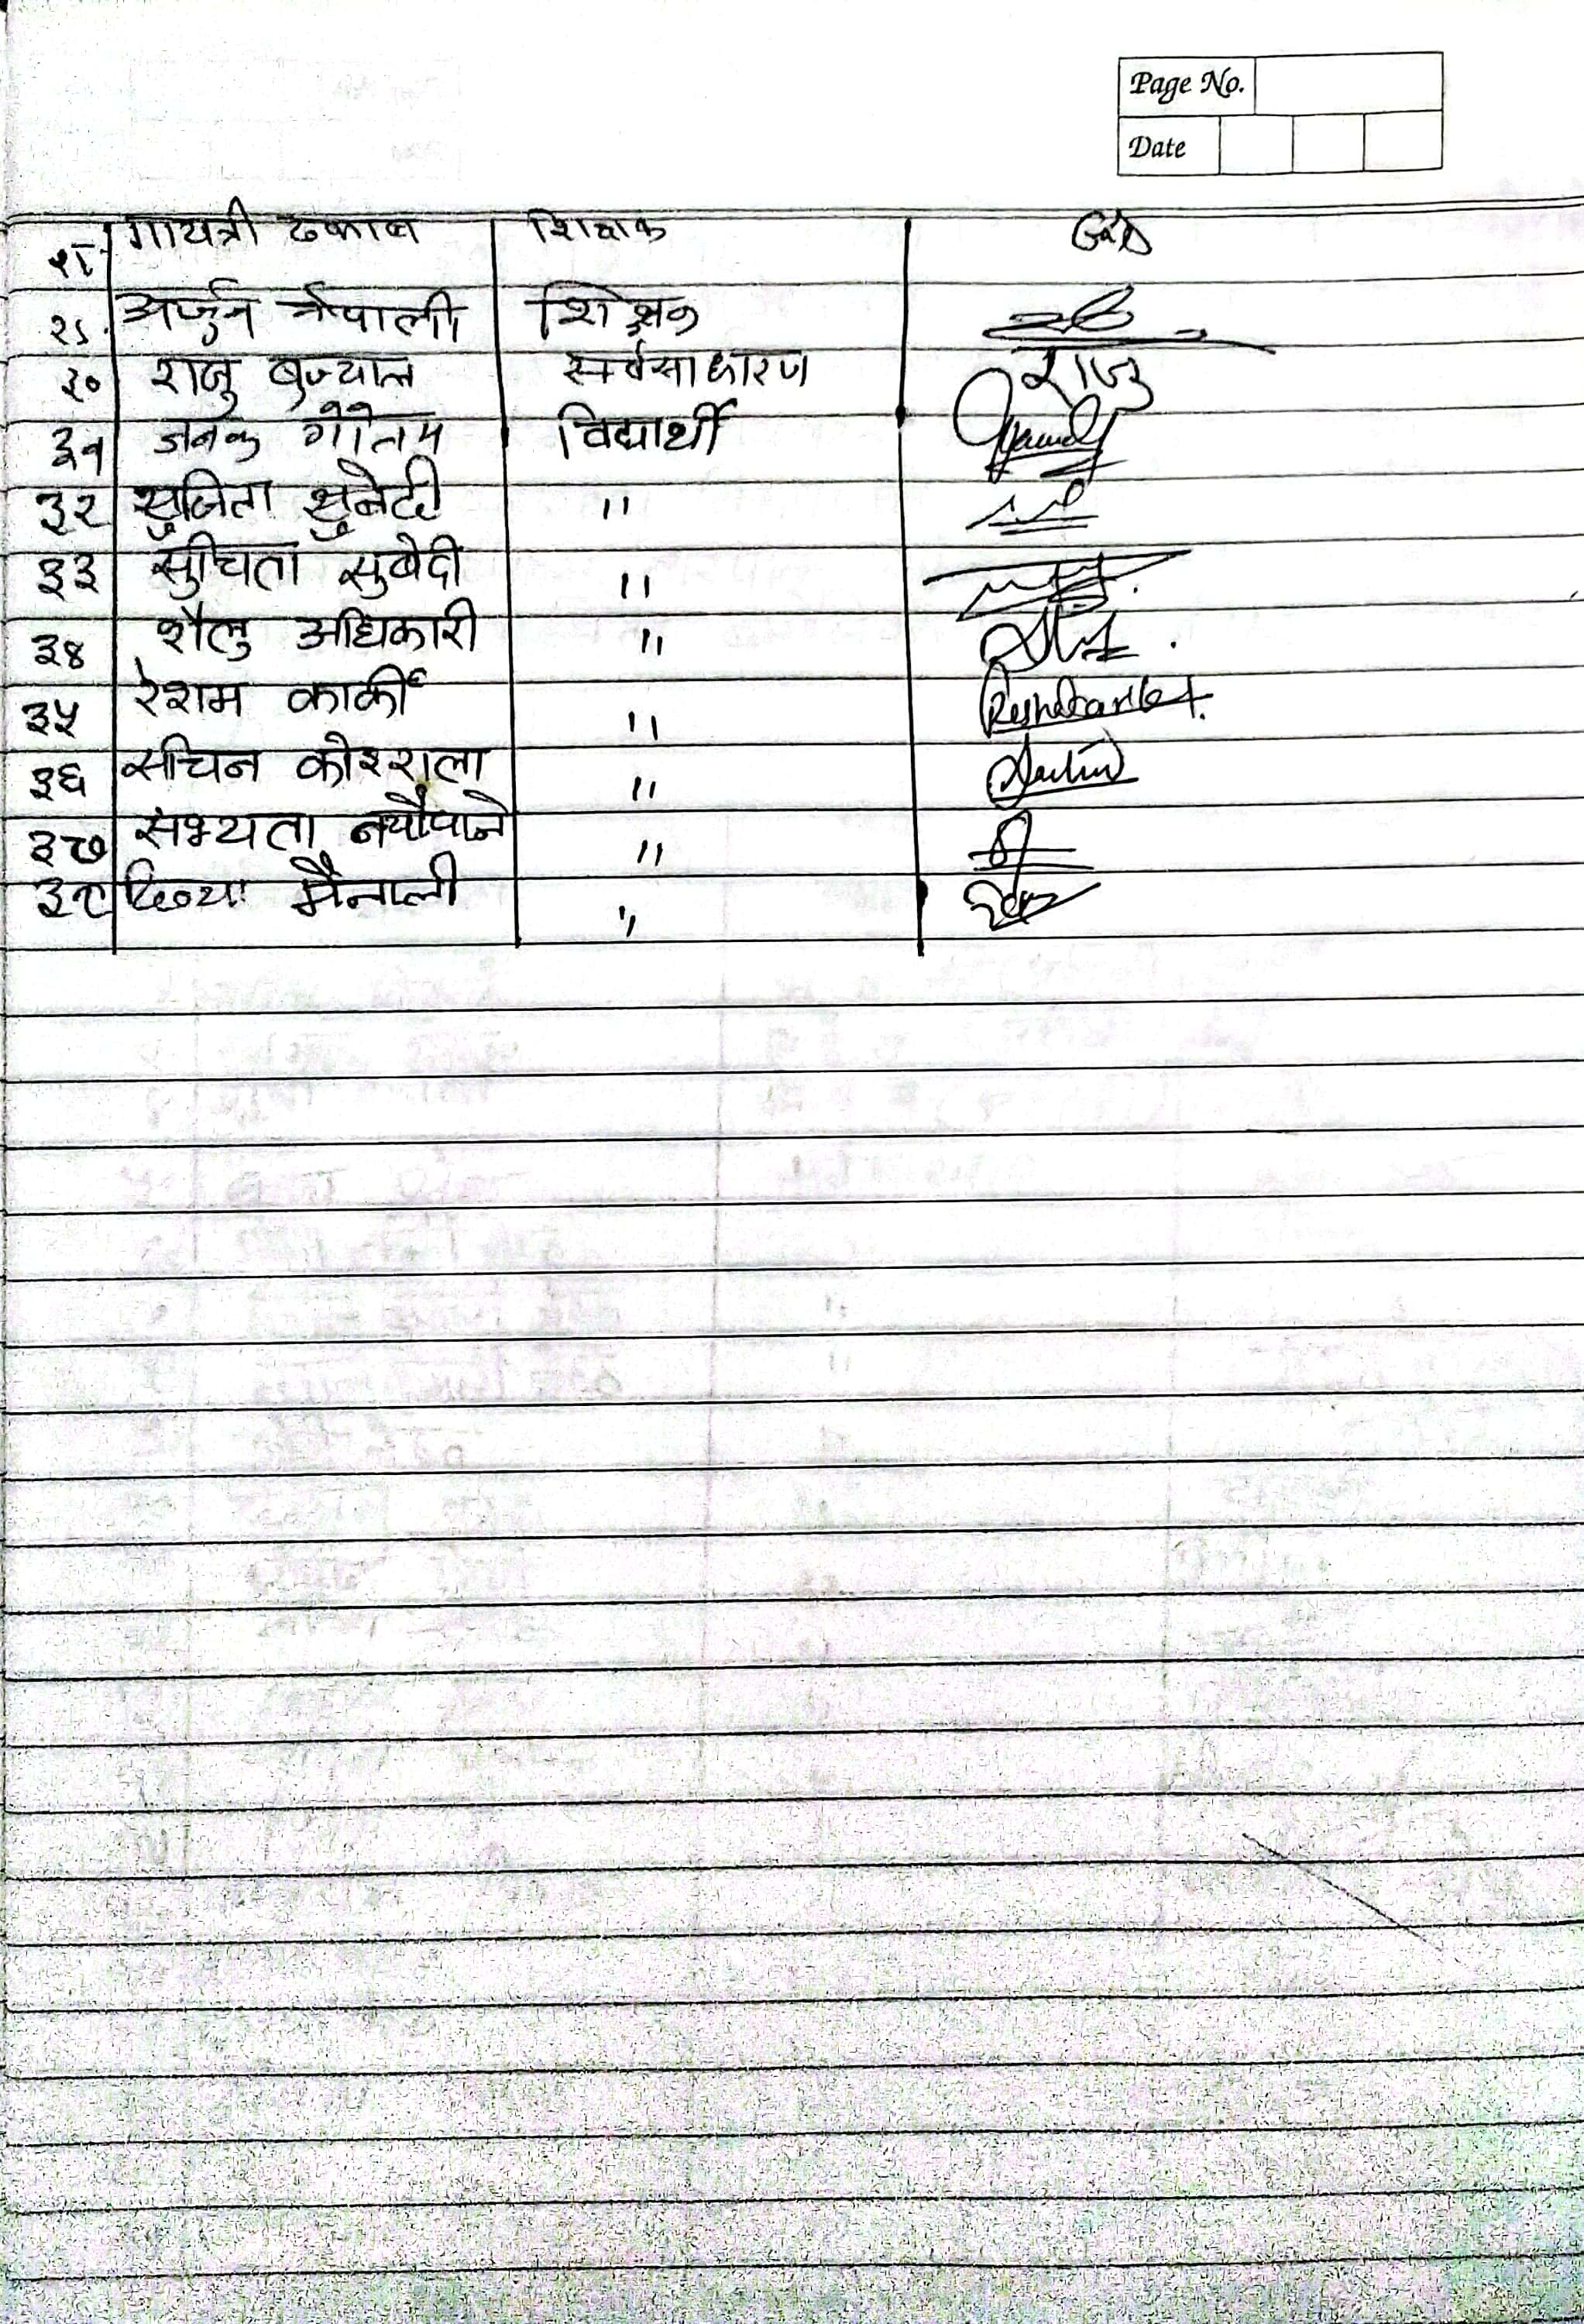 Page No.
Date
२८ गायत्री ढकाल शिक्षक
२९. अर्जुन नेपाली शिक्षक
३० राजु बज्याल सर्वसाधारण राजु
३१ जनक गौतम विद्यार्थी
३२ सुजिता सुवेदी "
३३ सुचिता सुवेदी "
३४ शैलु अधिकारी "
३५ रेशम कार्की "
३६ सचिन कोइराला "
३७ सभ्यता न्यौपाने "
३८ दिव्या मैनाली "